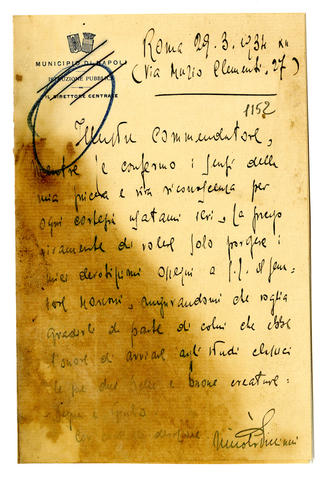 MUNICIPIO DI NAPOLI
ISTRUZIONE PUBBLICA
IL DIRETTORE CENTRALE
Roma 29.3.1934 XII
(Via Muzio Clementi, 27)
1152
Illustre Commendatore,
mentre Le confermo i sensi della
mia sincera e viva riconoscenza per
ogni cortesia usatami ieri, La prego
vivamente di voler solo porgere i
miei devotissimi ossequi a S.E. il Sena-
tore Marconi, augurandomi che voglia
gradirli da parte di colui che ebbe
l'onore di avviare agli studi classici
le sue due belle e buone creature.
devozione